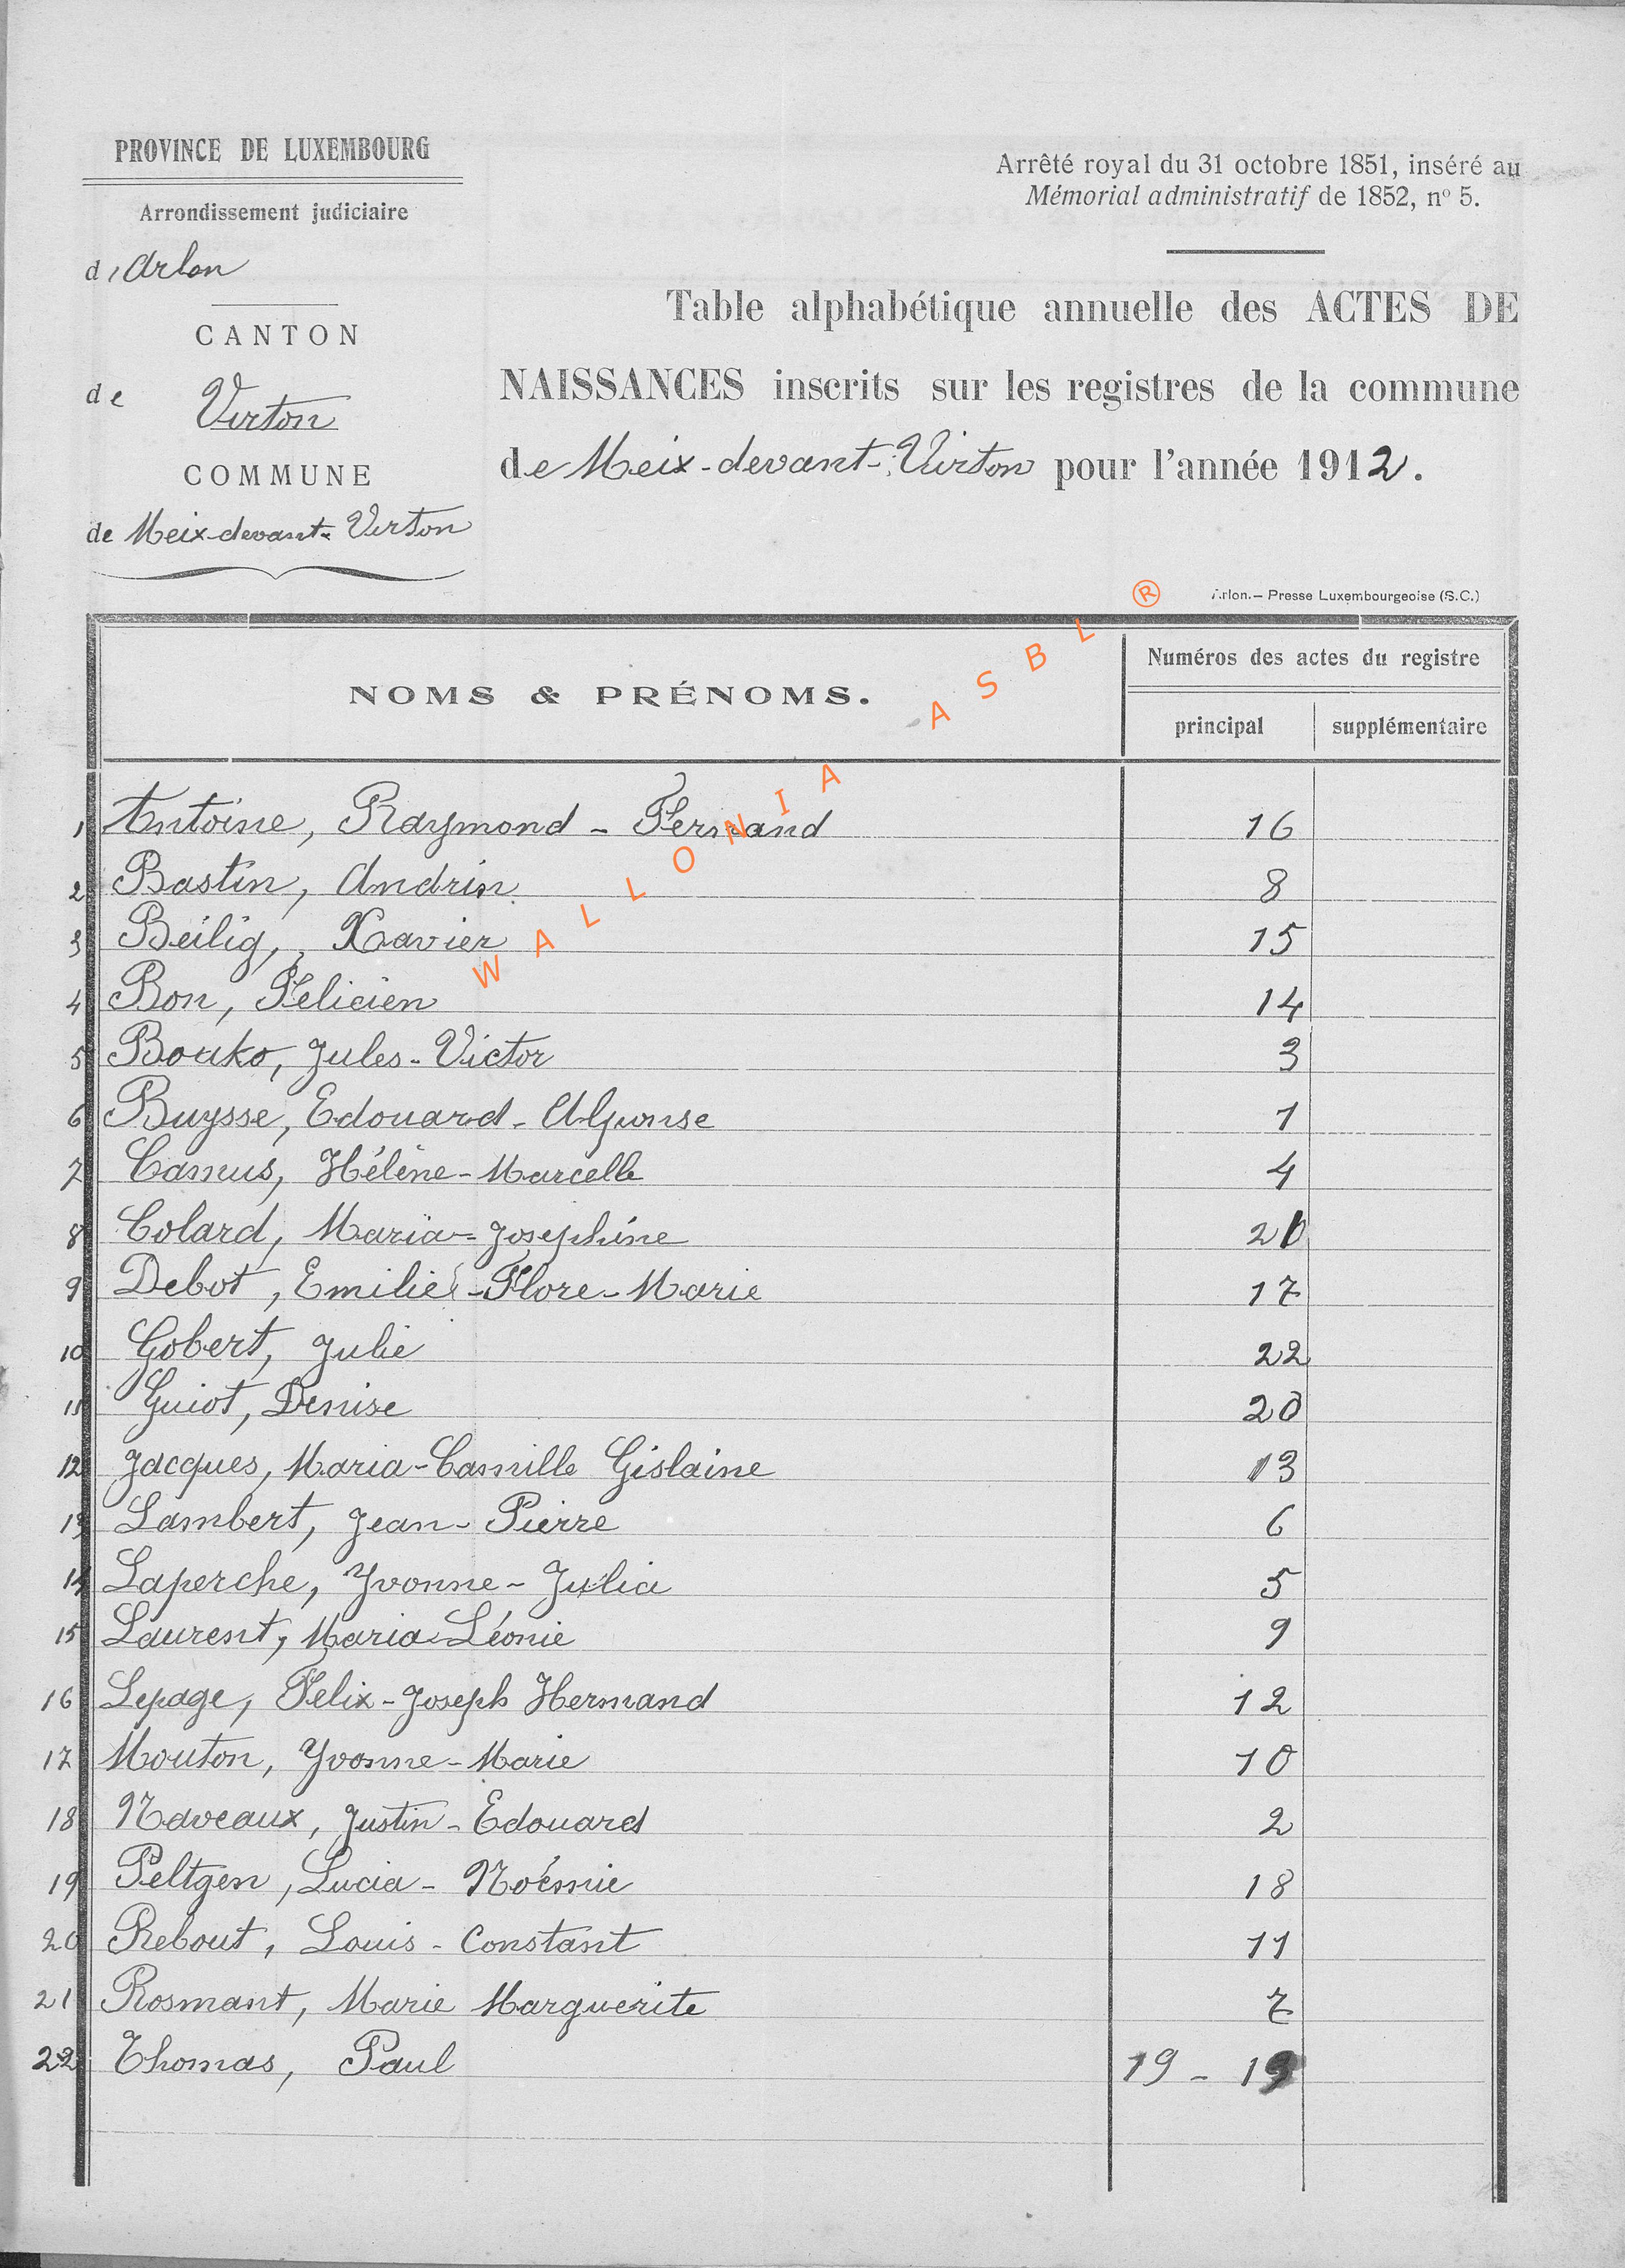 PROVINCE DE LUXEMBOURG
Arrondissement judiciaire
d'Arlon
CANTON
de Virton
COMMUNE
de Meix-devant-Virton
Arrêté royal du 31 octobre 1851, inséré au
Mémorial administratif de 1852, n° 5.
Table alphabétique annuelle des ACTES DE
NAISSANCES inscrits sur les registres de la commune
de Meix-devant-Virton pour l'année 1912.
Arlon.— Presse Luxembourgeoise (S.C.)
NOMS & PRÉNOMS.
Numéros des actes du registre
principal supplémentaire
1 Antoine, Raymond - Fernand 16
2 Bastin, Andrin 8
3 Beilig, Xavier 15
4 Bon, Félicien 14
5 Bouko, Jules-Victor 3
6 Buysse, Edouard-Alponse 1
7 Camus, Hélène-Marcelle 4
8 Colard, Maria-Josephine 21
9 Debot, Emilie-Flore-Marie 17
10 Gobert, Julie 22
11 Guiot, Denise 20
12 Jacques, Maria-Camille Gislaine 13
13 Lambert, Jean-Pierre 6
14 Laperche, Yvonne-Julia 5
15 Laurent, Maria-Léonie 9
16 Lepage, Felix-Joseph Hermand 12
17 Mouton, Yvonne-Marie 10
18 Naveaux, Justin-Edouard 2
19 Peltgen, Lucia-Noémie 18
20 Rebout, Louis-Constant 11
21 Rosmant, Marie Marguerite 7
22 Thomas, Paul 19 - 19
WALLONIA ASBL ®